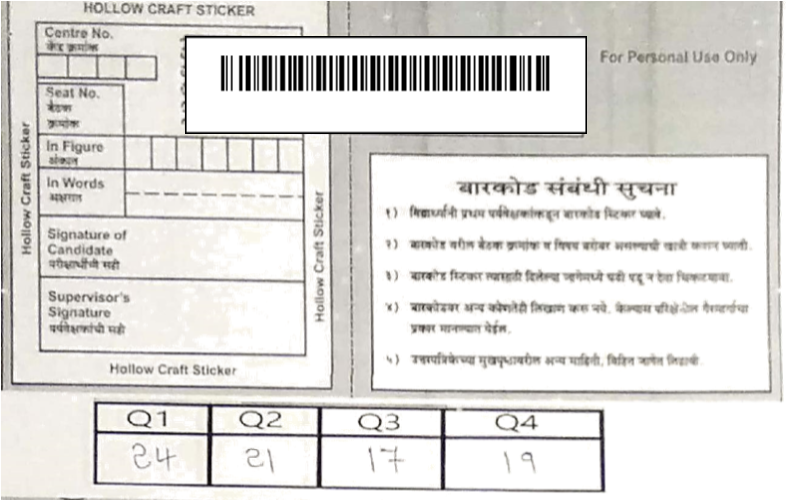 HOLLOW CRAFT STICKER
Centre No.
केंद्र क्रमांक
Seat No.
बैठक
क्रमांक
In Figure
अंकात
In Words
अक्षरात
Signature of
Candidate
परीक्षार्थीची सही
Supervisor's
Signature
पर्यवेक्षकांची सही
Hollow Craft Sticker
Hollow Craft Sticker
Hollow Craft Sticker
For Personal Use Only
बारकोड संबंधी सुचना
१) विद्यार्थ्यांनी प्रथम पर्यवेक्षकांकडून बारकोड स्टिकर घ्यावे.
२) बारकोड वरील बैठक क्रमांक व विषय बरोबर असल्याची खात्री करून घ्यावी.
३) बारकोड स्टिकर त्यासाठी दिलेल्या जागेमध्ये घडी पडू न देता चिकटवावा.
४) बारकोडवर अन्य कोणतेही लिखाण करू नये. केल्यास परिक्षेतील गैरमार्गाचा
प्रकार मानल्यात येईल.
५) उत्तरपत्रिकेच्या मुखपृष्ठावरील अन्य माहिती, विहित जागेत लिहावी.
Q1 Q2 Q3 Q4
24 21 17 19